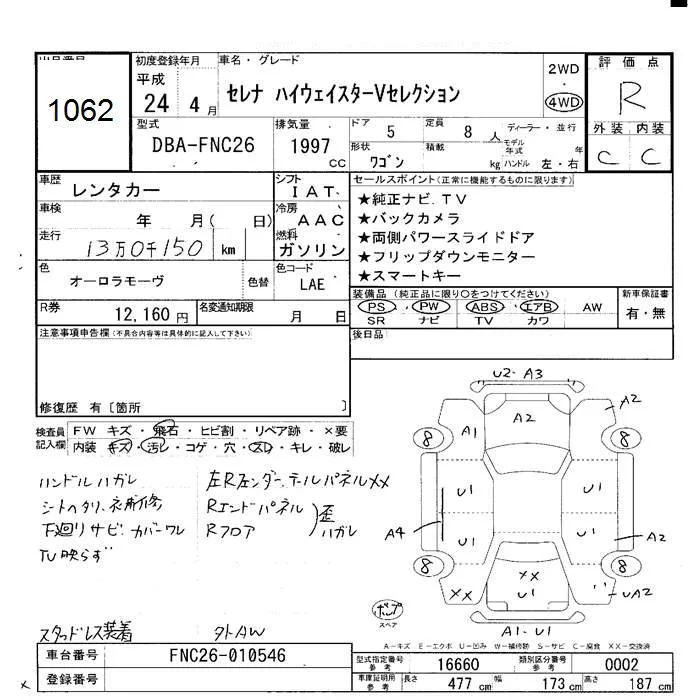 初度登録年月 車名・グレード 評価点
1062
平成 24年 4月
セレナ ハイウェイスターVセレクション
2WD
・
4WD
R
型式 DBA-FNC26
排気量 1997 CC
ドア 5 定員 8人 ディーラー・並行
形状 ワゴン 積載 kg
モデル年式 年
ハンドル 左・右
外装 内装
C C
車歴 レンタカー
シフト IAT
セールスポイント(正常に機能するものに限ります)
車検 年 月( 日)
冷房 AAC
走行 13万0千150 km
燃料 ガソリン
★純正ナビ.TV
★バックカメラ
★両側パワースライドドア
★フリップダウンモニター
★スマートキー
色 オーロラモーヴ 色替
色コード LAE
R券 12,160円
名変通知期限 月 日
装備品(純正品に限り○をつけてください)
PS・PW・ABS・エアB・AW
SR ナビ TV カワ
新車保証書
有・無
注意事項申告欄(不具合内容等は具体的に記入して下さい)
後日品
修復歴 有〔箇所 〕
検査員記入欄
FW キズ・飛石・ヒビ割・リペア跡・×要
内装 キズ・汚レ・コゲ・穴・スレ・キレ・破レ
U2・A3
A2
A1
A2
8
8
U1
U1
A4
U1
U1
A2
8
8
XX
XX
U1
UA2
A1・U1
ハンドルハガレ
下廻りサビ カバーワレ
TV映らず
Rエンドパネル
Rフロア
歪
ハガレ
スペア
スタッドレス装着
外トAW
A−キズ E−エクボ U−凹み W−補修跡 S−サビ C−腐食 XX−交換済
車台番号 FNC26-010546
登録番号
型式指定番号 参考 16660
類別区分番号 参考 0002
車庫証明用 参考
長さ 477cm 幅 173cm 高さ 187cm